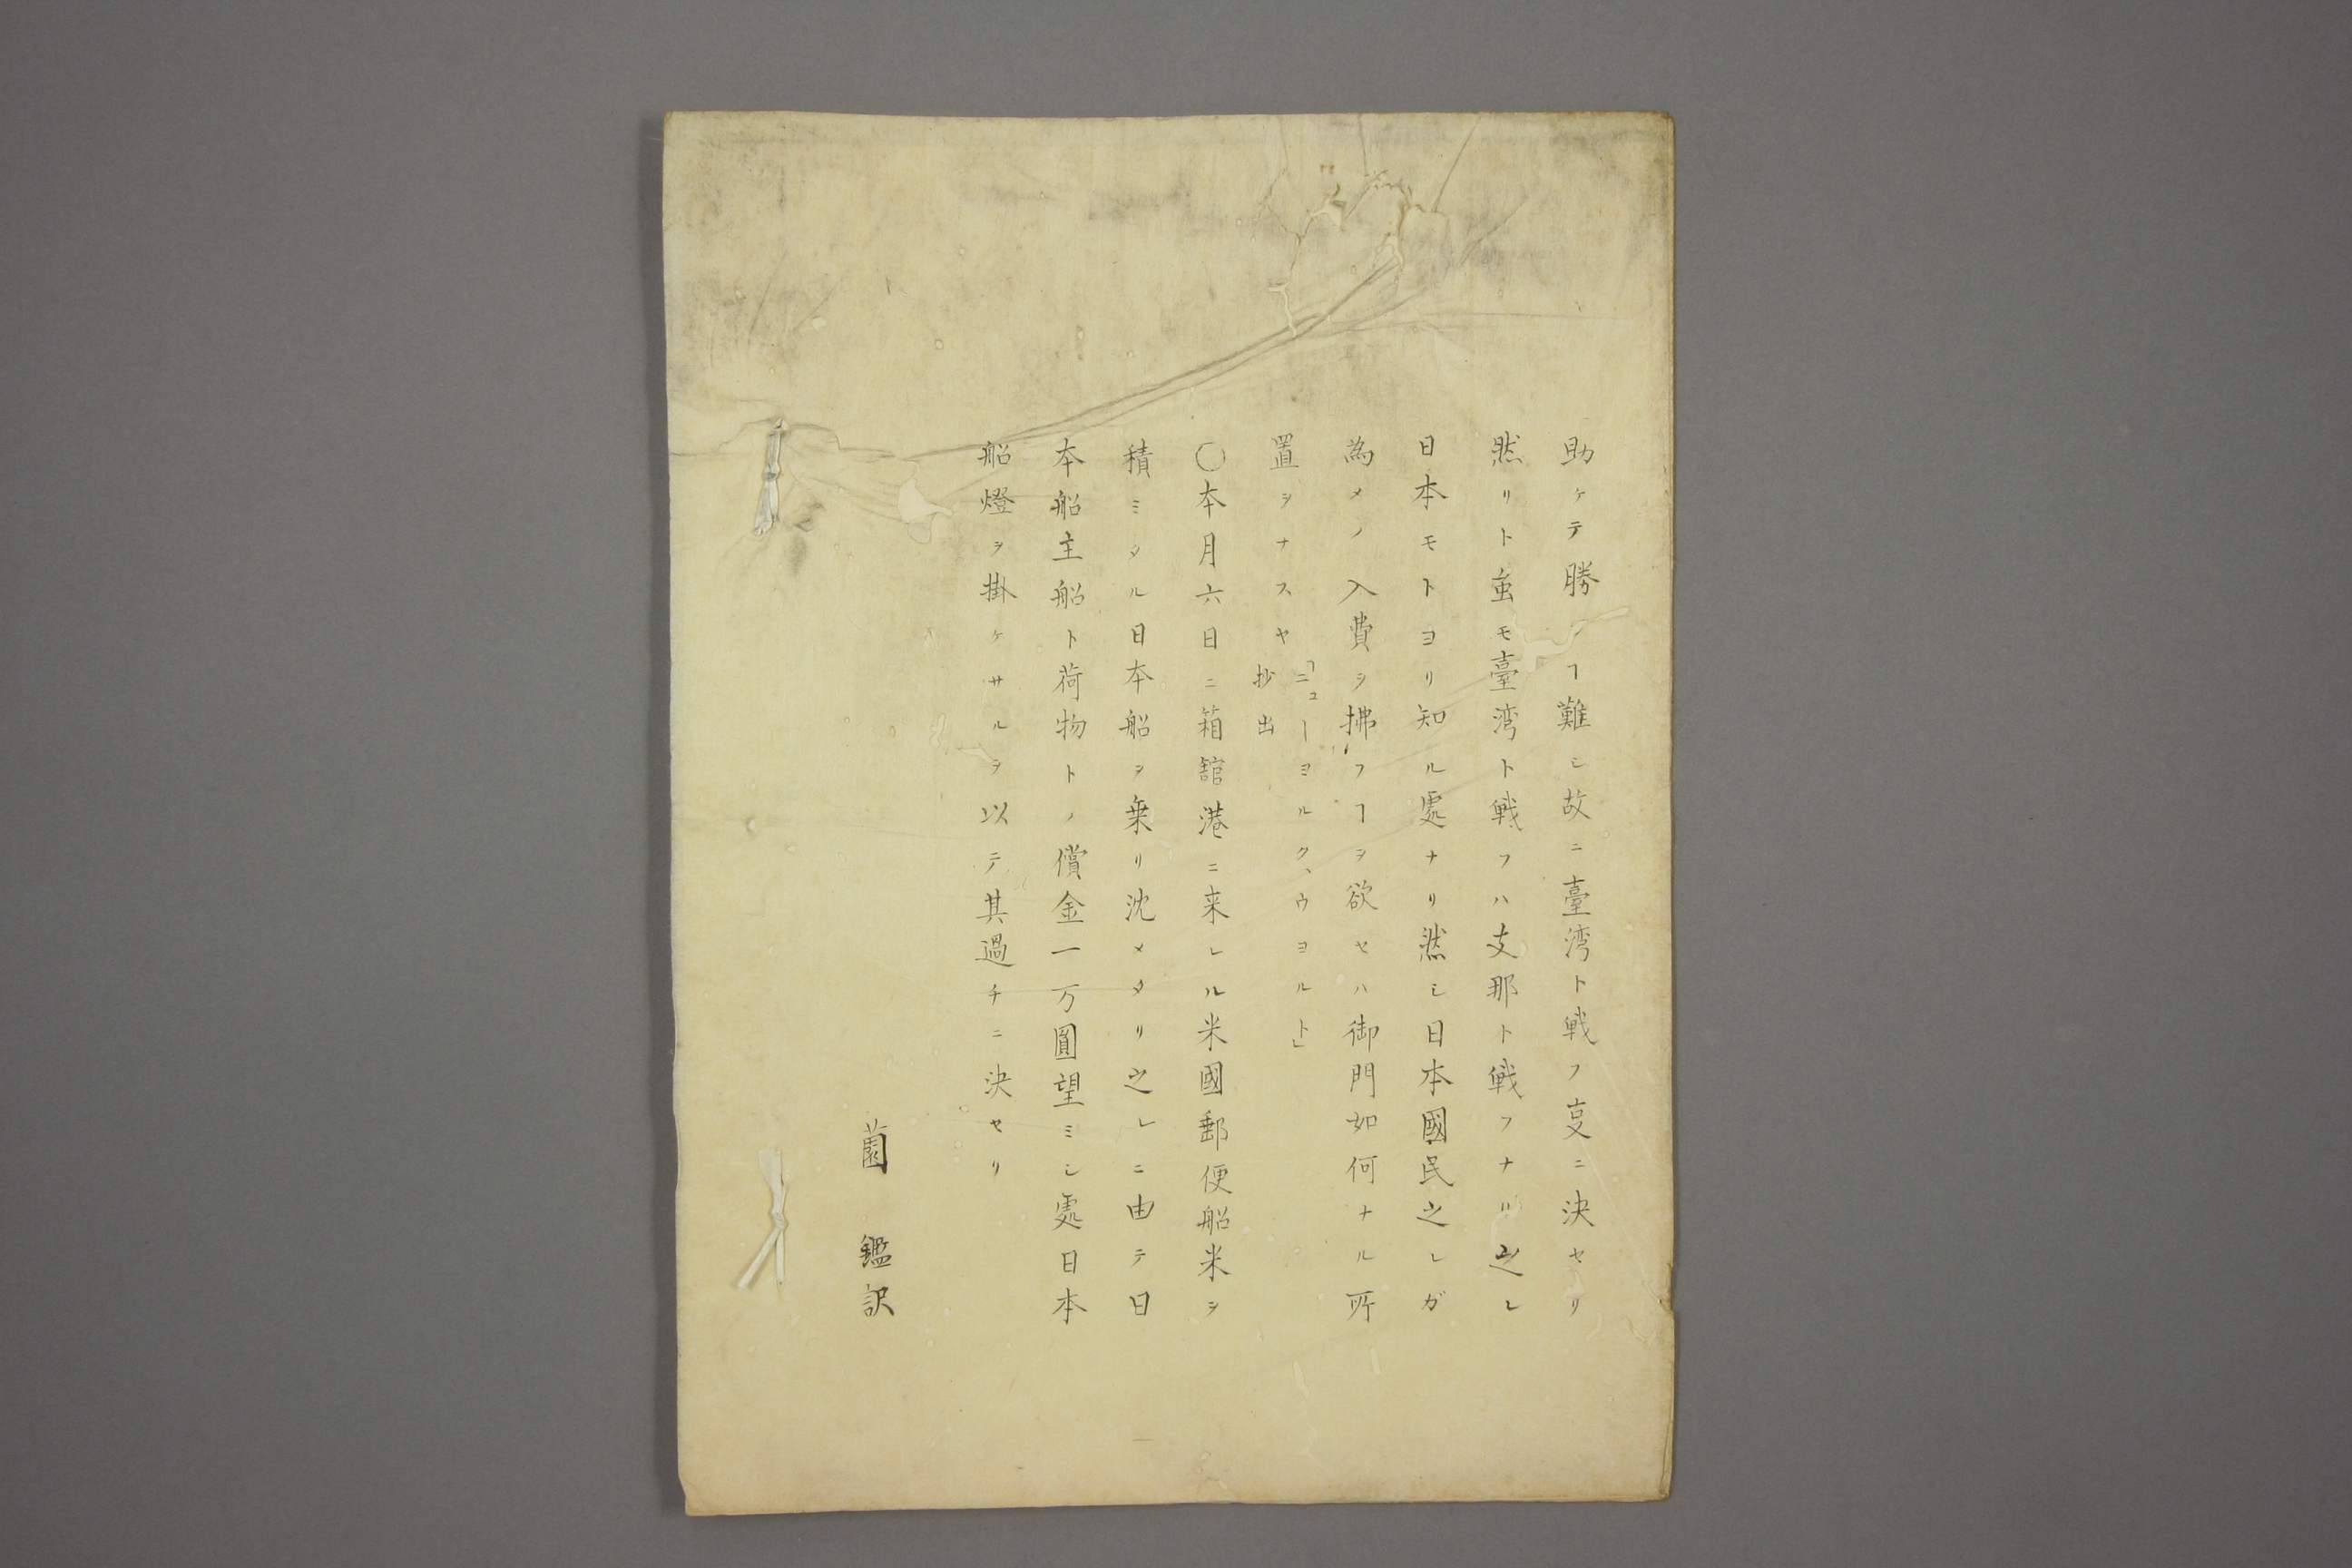 助ケテ勝ツヿ難シ故ニ臺湾ト戦フ㕝ニ決セリ
然リト虽モ臺湾ト戦フハ支那ト戦フナリ之レ
日本モトヨリ知ル處ナリ然シ日本國民之レガ
為メノ入費ヲ拂フヿヲ欲セハ御門如何ナル所
置ヲナスヤ「ニューヨルク、ウヨルト」抄出
〇本月六日ニ箱舘港ニ来レル米國郵便船米ヲ
積ミタル日本船ヲ乗リ沈メタリ之レニ由テ日
本船主船ト荷物トノ償金一万圓望ミシ處日本
船燈ヲ掛ケサルヲ以テ其過チニ決セリ
薗 鑑訳